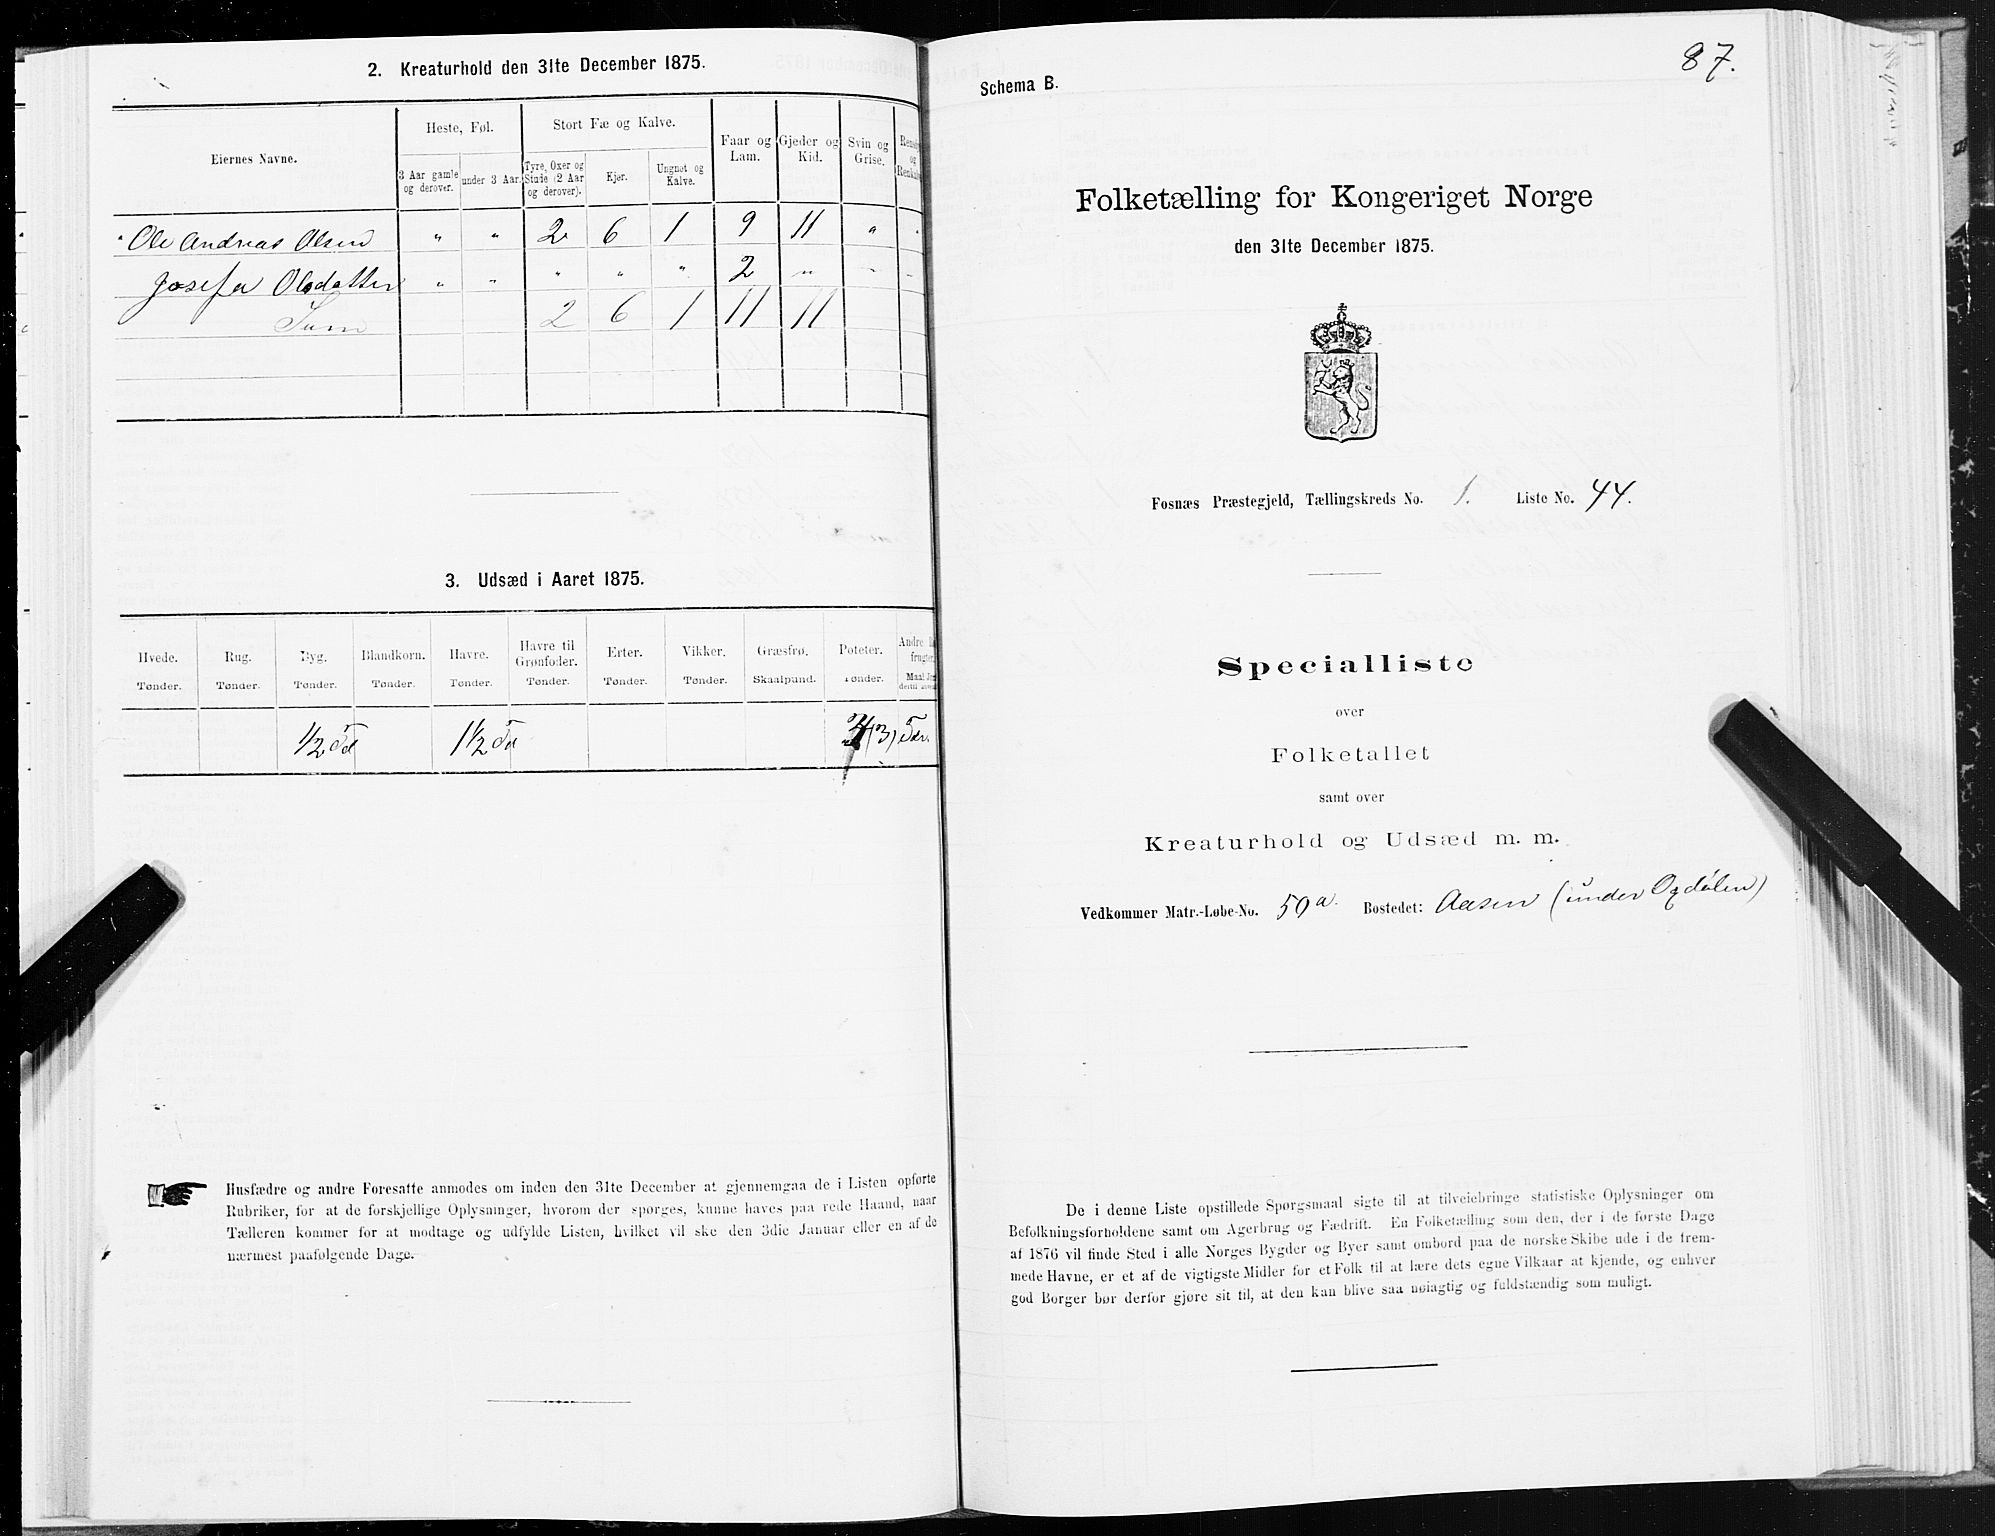 2. Kreaturhold den 31te December 1875.
Eiernes Navne.
Heste, Føl.
Stort Fæ og Kalve.
Faar og Lam.
Gjeder og Kid.
Svin og Grise.
3 Aar gamle og derover.
under 3 Aar.
Tyre, Oxer og Stude (2 Aar og derover).
Kjør.
Ungnøt og Kalve.
Ole Andreas Olsen " " 2 6 1 9 11 "
Josefa Olsdatter " " " " " 2 " "
Sum 2 6 1 11 11
3. Udsæd i Aaret 1875.
Hvede. Rug. Byg. Blandkorn. Havre. Havre til Grønfoder. Erter. Vikker. Græsfrø. Poteter.
Tønder. Tønder. Tønder. Tønder. Tønder. Tønder. Tønder. Tønder. Skaalpund. Tønder.
1/2 Td 1 1/2 Td (3)
Husfædre og andre Foresatte anmodes om inden den 31te December at gjennemgaa de i Listen opførte
Rubriker, for at de forskjellige Oplysninger, hvorom der spørges, kunne haves paa rede Haand, naar
Tælleren kommer for at modtage og udfylde Listen, hvilket vil ske den 3die Januar eller en af de
nærmest paafølgende Dage.
87.
Schema B.
Folketælling for Kongeriget Norge
den 31te December 1875.
Fosnæs Præstegjeld, Tællingskreds No. 1. Liste No. 44.
Specialliste
over
Folketallet
samt over
Kreaturhold og Udsæd m. m.
Vedkommer Matr.-Løbe-No. 59a. Bostedet: Aasen (under Opdølen)
De i denne Liste opstillede Spørgsmaal sigte til at tilveiebringe statistiske Oplysninger om
Befolkningsforholdene samt om Agerbrug og Fædrift. En Folketælling som den, der i de første Dage
af 1876 vil finde Sted i alle Norges Bygder og Byer samt ombord paa de norske Skibe ude i de frem-
mede Havne, er et af de vigtigste Midler for et Folk til at lære dets egne Vilkaar at kjende, og enhver
god Borger bør derfor gjøre sit til, at den kan blive saa nøiagtig og fuldstændig som muligt.